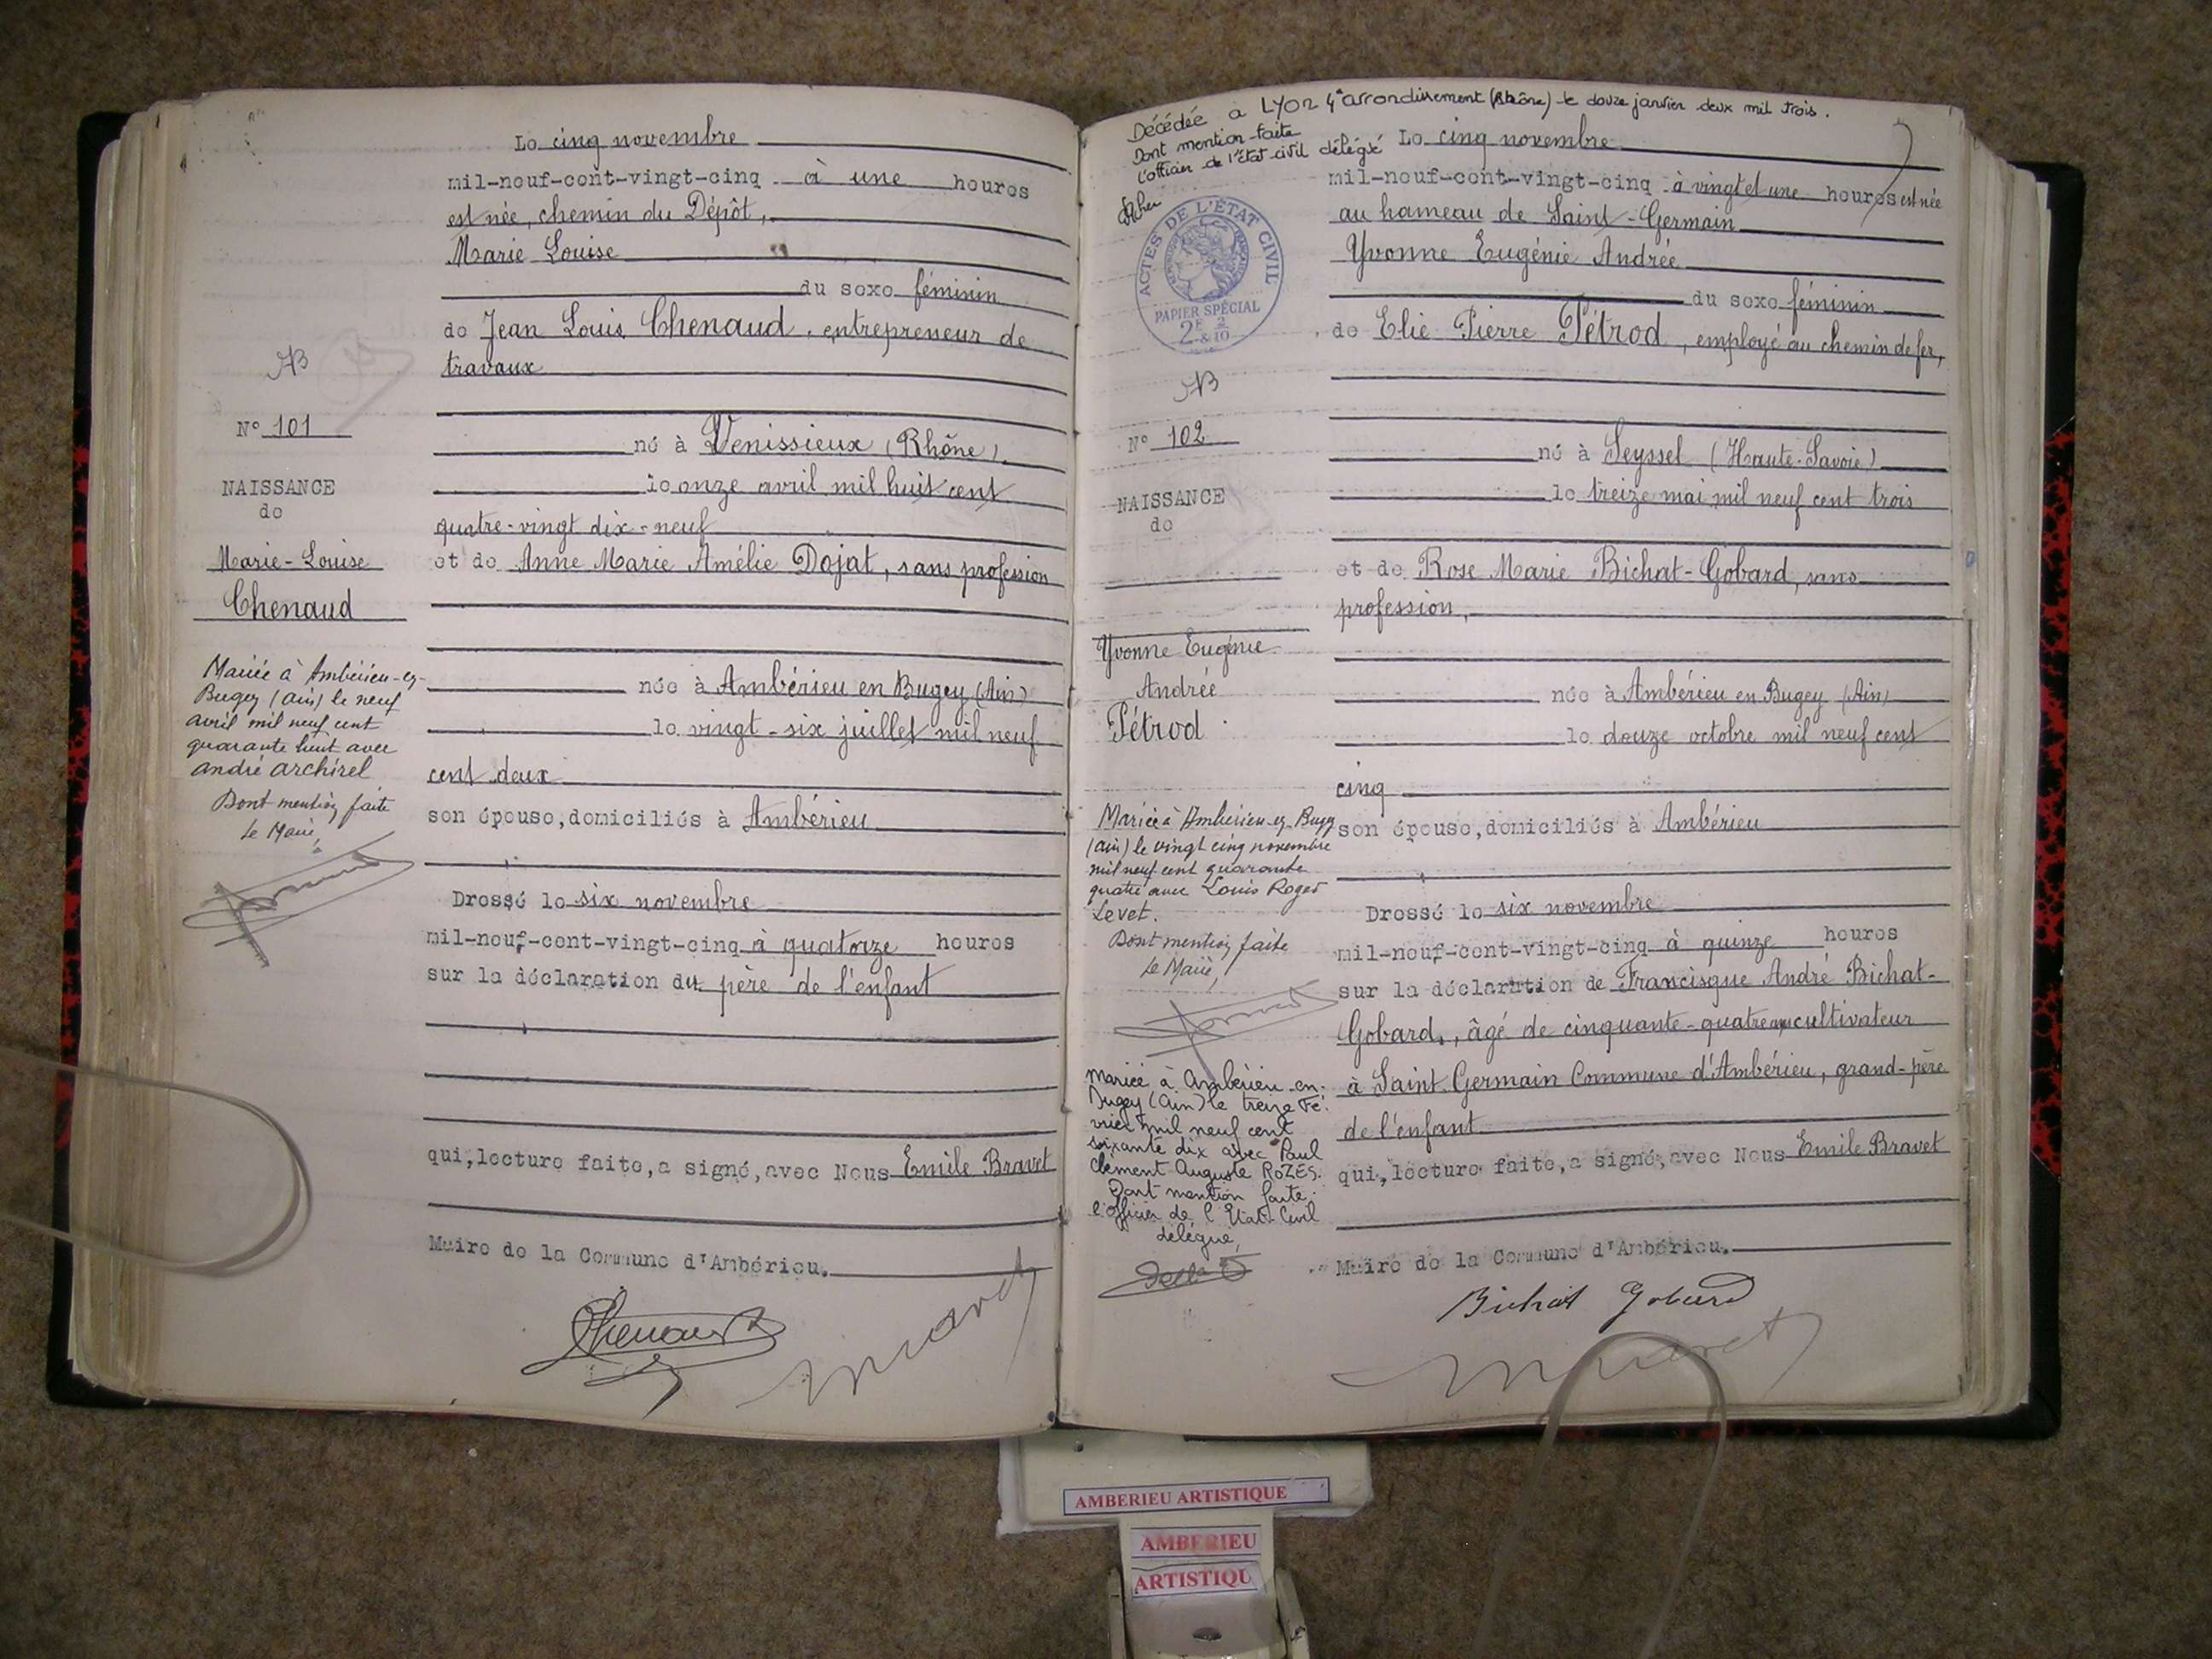 Le cinq novembre
mil-neuf-cent-vingt-cinq à une heures
est née, chemin du Dépôt,
Marie Louise
du sexe féminin
de Jean Louis Chenaud, entrepreneur de
travaux
né à Venissieux (Rhône)
le onze avril mil huit cent
quatre-vingt dix-neuf
et de Anne Marie Amélie Dojat, sans profession
née à Ambérieu en Bugey (Ain)
le vingt-six juillet mil neuf
cent deux
son épouse, domiciliés à Ambérieu
Dressé le six novembre
mil-neuf-cent-vingt-cinq à quatorze heures
sur la déclaration du père de l'enfant
qui, lecture faite, a signé, avec Nous Emile Bravet
Maire de la Commune d'Ambérieu.
Chenaud
N° 101
NAISSANCE
de
Marie-Louise
Chenaud
Mariée à Ambérieu-en-
Bugey (Ain) le neuf
avril mil neuf cent
quarante huit avec
André Archirel
Dont mention faite
Le Maire,
Décédée à Lyon 4e arrondissement (Rhône) le douze janvier deux mil trois.
Dont mention faite
L'officier de l'état civil délégué
ACTES DE L'ÉTAT CIVIL
PAPIER SPÉCIAL
2F & 2/10
N° 102
NAISSANCE
de
Yvonne Eugénie
Andrée
Pétrod
Mariée à Ambérieu-en-Bugey
(Ain) le vingt cinq novembre
mil neuf cent quarante
quatre avec Louis Roger
Levet.
Dont mention faite
Le Maire,
Mariée à Ambérieu-en-
Bugey (Ain) le treize Fé-
vrier mil neuf cent
soixante dix avec Paul
Clément Auguste ROZES.
Dont mention faite.
l'officier de l'Etat-Civil
délégué,
Le cinq novembre
mil-neuf-cent-vingt-cinq à vingt et une heures est née
au hameau de Saint-Germain
Yvonne Eugénie Andrée
du sexe féminin
de Elie Pierre Pétrod, employé au chemin de fer,
né à Seyssel (Haute-Savoie)
le treize mai mil neuf cent trois
et de Rose Marie Bichat-Gobard, sans
profession,
née à Ambérieu en Bugey (Ain)
le douze octobre mil neuf cent
cinq
son épouse, domiciliés à Ambérieu
Dressé le six novembre
mil-neuf-cent-vingt-cinq à quinze heures
sur la déclaration de Francisque André Bichat-
Gobard, âgé de cinquante-quatre ans cultivateur
à Saint Germain Commune d'Ambérieu, grand-père
de l'enfant
qui, lecture faite, a signé, avec Nous Emile Bravet
Maire de la Commune d'Ambérieu.
Bichat Gobard
AMBERIEU ARTISTIQUE
AMBERIEU
ARTISTIQU